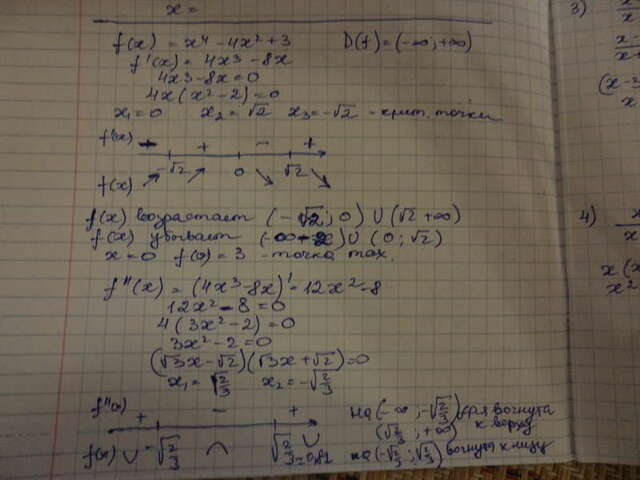 x =
f(x) = x⁴ - 4x² + 3    D(f) = (-∞; +∞)
f'(x) = 4x³ - 8x
4x³ - 8x = 0
4x(x² - 2) = 0
x₁ = 0    x₂ = √2    x₃ = -√2 - крит. точки
f'(x)    +    -    +
-√2    0    √2
f(x) ↗ ↗ ↘ ↘
f(x) возрастает (-√2; 0) ∪ (√2 +∞)
f(x) убывает (-∞ - ) ∪ (0; √2)
x = 0    f(0) = 3    - точка max.
f''(x) = (4x³ - 8x)' = 12x² - 8
12x² - 8 = 0
4(3x² - 2) = 0
3x² - 2 = 0
(√3x - √2)(√3x + √2) = 0
x₁ = √2/3    x₂ = -√2/3
f''(x)    +    -    +
f(x) ∪    -√2/3    ∩    √2/3 = 0,82    ∪
на (-∞; -√2/3) вогнута
(√2/3; +∞) к верху
на (-√2/3; √2/3) вогнута к низу
3)
x
x-
x+
(x-3
x²
4)
x
x
x(x
x²